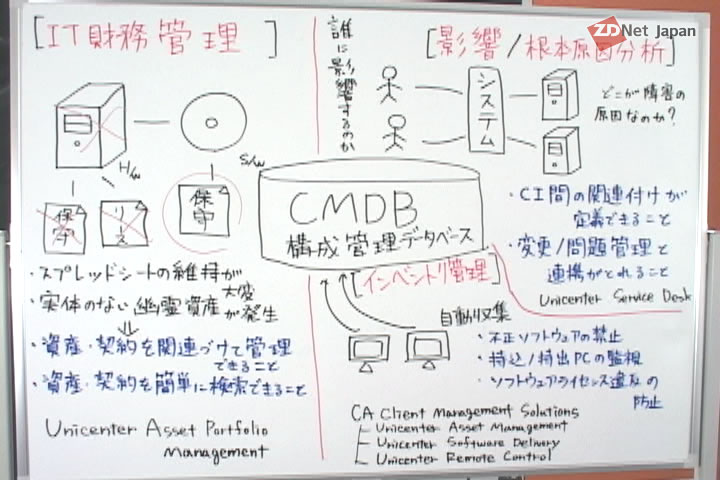 ZDNet Japan
[IT財務管理]
H/W
S/W
保守
リース
保守
・スプレッドシートの維持が大変
・実体のない幽霊資産が発生
・資産・契約を関連づけて管理
できること
・資産・契約を簡単に検索できること
Unicenter Asset Portfolio
Management
誰に影響するのか
[影響/根本原因分析]
システム
どこが障害の
原因なのか?
CMDB
構成管理データベース
・CI間の関連付けが
定義できること
・変更/問題管理と
連携がとれること
Unicenter Service Desk
[インベントリ管理]
自動収集
・不正ソフトウェアの禁止
・持込/持出PCの監視
・ソフトウェアライセンス違反の
防止
CA Client Management Solutions
Unicenter Asset Management
Unicenter Software Delivery
Unicenter Remote Control